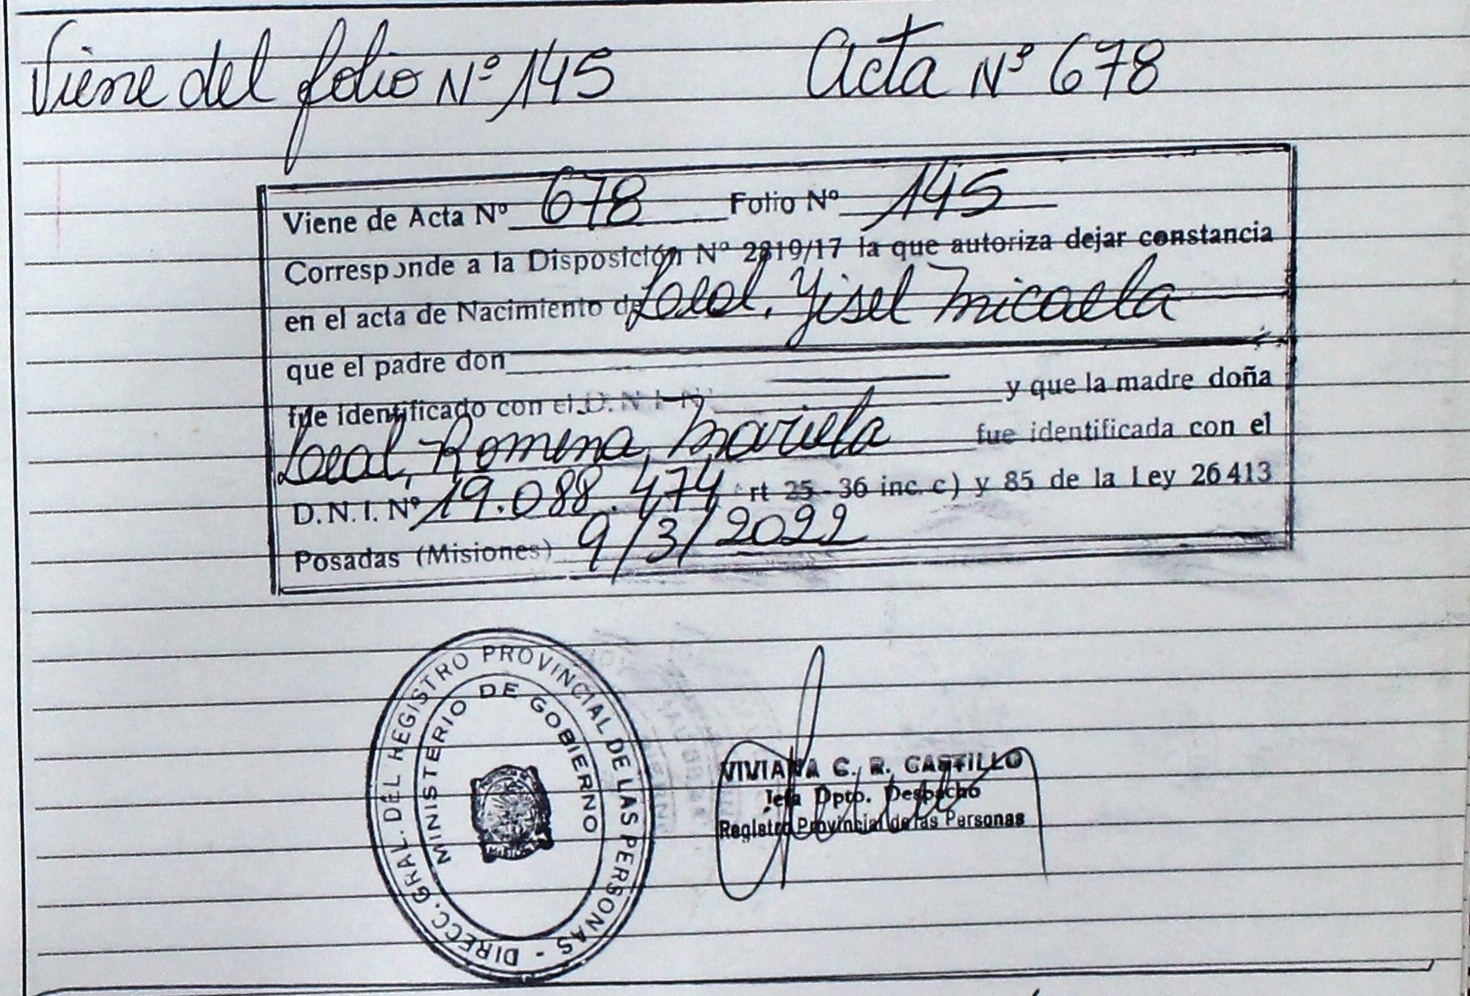 Viene del folio Nº 145 Acta Nº 678
Viene de Acta Nº 678 Folio Nº 145
Corresponde a la Disposición Nº 2819/17 la que autoriza dejar constancia
en el acta de Nacimiento de Leal, Yisel Micaela
que el padre don
fue identificado con el D.N.I. Nº y que la madre doña
Leal, Romina Mariela fue identificada con el
D.N.I. Nº 19.088.474 Art 25 - 36 inc. c) y 85 de la Ley 26413
Posadas (Misiones) 9/3/2022
DIRECC. GRAL. DEL REGISTRO PROVINCIAL DE LAS PERSONAS -
MINISTERIO DE GOBIERNO
VIVIANA C. R. CASTILLO
Jefa Dpto. Despacho
Registro Provincial de las Personas